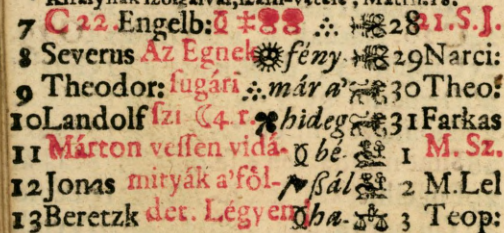 7 C 22. Engelb: 28 21. S. J.
8 Severus Az Egnek fény 29 Narci:
9 Theodor: sugári már a' 30 Theo:
10 Landolf szi 4. r. hideg 31 Farkas
11 Márton vessen vidá- bé 1 M. Sz.
12 Jonas mityák a' föl- ßál 2 M. Lel
13 Beretzk det. Légyen ha- 3 Teop: